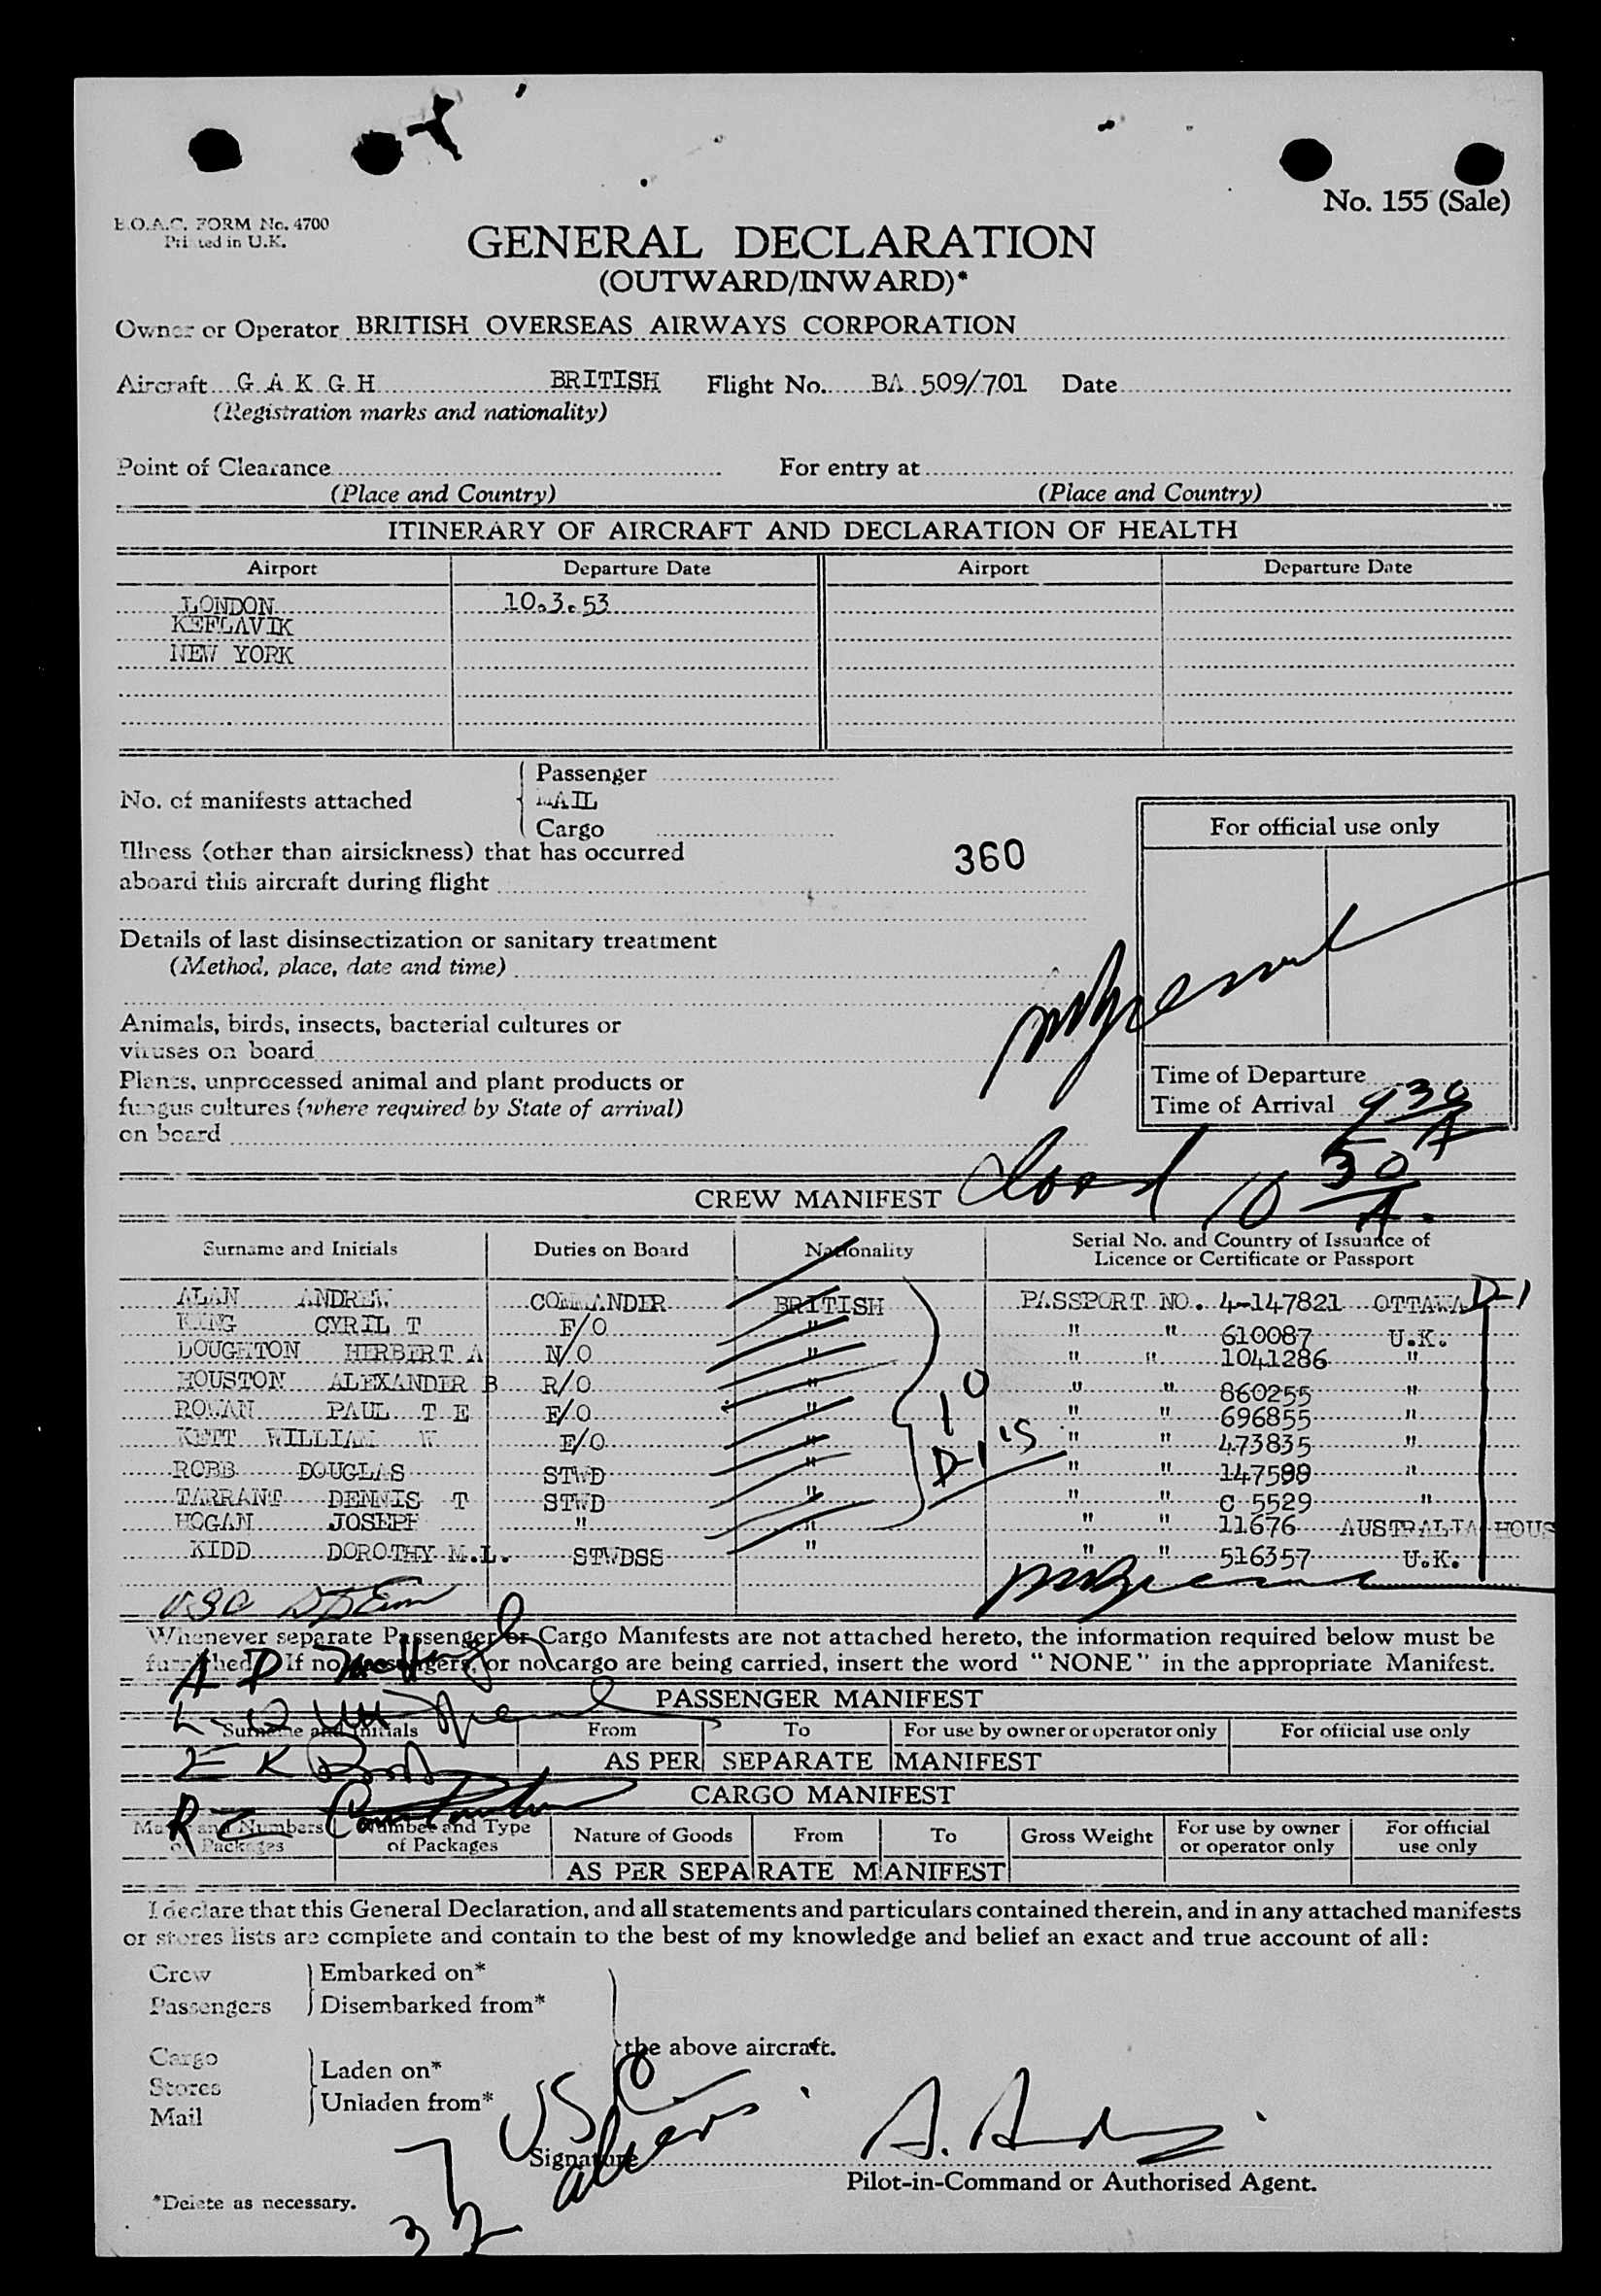 No. 155 (Sale)
B.O.A.C. FORM No. 4700
Printed in U.K.
GENERAL DECLARATION
(OUTWARD/INWARD)*
Owner or Operator BRITISH OVERSEAS AIRWAYS CORPORATION
Aircraft G A K G H BRITISH Flight No. BA 509/701 Date
(Registration marks and nationality)
Point of Clearance For entry at
(Place and Country) (Place and Country)
ITINERARY OF AIRCRAFT AND DECLARATION OF HEALTH
Airport Departure Date Airport Departure Date
LONDON 10.3.53
KEFLAVIK
NEW YORK
Passenger
No. of manifests attached MAIL
Cargo
For official use only
Illness (other than airsickness) that has occurred 360
aboard this aircraft during flight
Details of last disinsectization or sanitary treatment
(Method, place, date and time)
Animals, birds, insects, bacterial cultures or
viruses on board
Plants, unprocessed animal and plant products or
fungus cultures (where required by State of arrival)
on board
Time of Departure
Time of Arrival 930 A
CREW MANIFEST 10 30 A.
Surname and Initials Duties on Board Nationality Serial No. and Country of Issuance of
Licence or Certificate or Passport
ALAN ANDREW COMMANDER BRITISH PASSPORT NO. 4-147821 OTTAWA D-1
KING CYRIL T F/O " " " 610087 U.K.
LOUGHTON HERBERT A N/O " " " 1041286 "
HOUSTON ALEXANDER B R/O " " " 860255 "
ROWAN PAUL T E E/O " " " 696855 "
KETT WILLIAM W E/O " " " 473835 "
ROBB DOUGLAS STWD " " " "
TARRANT DENNIS T STWD " " " C 5529 "
HOGAN JOSEPH " " " " 11676 AUSTRALIA HOUS
KIDD DOROTHY M.L. STWDSS " " " 516357 U.K.
10
D-1's
Whenever separate Passenger or Cargo Manifests are not attached hereto, the information required below must be
furnished. If no passengers, or no cargo are being carried, insert the word "NONE" in the appropriate Manifest.
PASSENGER MANIFEST
Surname and Initials From To For use by owner or operator only For official use only
AS PER SEPARATE MANIFEST
CARGO MANIFEST
Marks and Numbers of Packages Number and Type of Packages Nature of Goods From To Gross Weight For use by owner or operator only For official use only
AS PER SEPARATE MANIFEST
I declare that this General Declaration, and all statements and particulars contained therein, and in any attached manifests
or stores lists are complete and contain to the best of my knowledge and belief an exact and true account of all:
Crew Embarked on*
Passengers Disembarked from*
the above aircraft.
Cargo
Stores Laden on*
Mail Unladen from*
Signature
Pilot-in-Command or Authorised Agent.
*Delete as necessary.